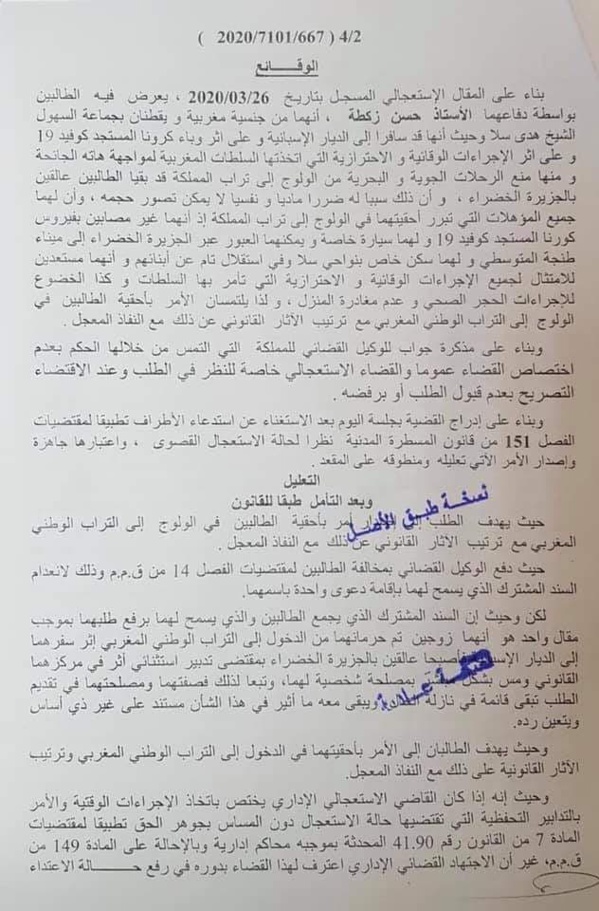 ( 2020/7101/667 ) 4/2
الوقائع
بناء على المقال الإستعجالي المسجل بتاريخ 2020/03/26 ، يعرض فيه الطالبين
بواسطة دفاعهما الأستاذ حسن زكطة ، أنهما من جنسية مغربية و يقطنان بجماعة السهول
الشيخ هدى سلا وحيث أنها قد سافرا إلى الديار الإسبانية و على اثر وباء كرونا المستجد كوفيد 19
و على اثر الإجراءات الوقائية و الاحترازية التي اتخذتها السلطات المغربية لمواجهة هاته الجائحة
و منها منع الرحلات الجوية و البحرية من الولوج إلى تراب المملكة قد بقيا الطالبين عالقين
بالجزيرة الخضراء ، و أن ذلك سببا له ضررا ماديا و نفسيا لا يمكن تصور حجمه ، وأن لهما
جميع المؤهلات التي تبرر أحقيتهما في الولوج إلى تراب المملكة إذ أنهما غير مصابين بفيروس
كورنا المستجد كوفيد 19 و لهما سيارة خاصة و يمكنهما العبور عبر الجزيرة الخضراء إلى ميناء
طنجة المتوسطي و لهما سكن خاص بنواحي سلا وفي استقلال تام عن أبنائهم و أنهما مستعدين
للامتثال لجميع الإجراءات الوقائية و الاحترازية التي تأمر بها السلطات و كذا الخضوع
للإجراءات الحجر الصحي و عدم مغادرة المنزل ، و لذا يلتمسان الأمر بأحقية الطالبين في
الولوج إلى التراب الوطني المغربي مع ترتيب الآثار القانوني عن ذلك مع النفاذ المعجل .
وبناء على مذكرة جواب للوكيل القضائي للمملكة التي التمس من خلالها الحكم بعدم
اختصاص القضاء عموما والقضاء الاستعجالي خاصة للنظر في الطلب وعند الاقتضاء
التصريح بعدم قبول الطلب أو برفضه .
وبناء على إدراج القضية بجلسة اليوم بعد الاستغناء عن استدعاء الأطراف تطبيقا لمقتضيات
الفصل 151 من قانون المسطرة المدنية نظرا لحالة الاستعجال القصوى ، واعتبارها جاهزة
وإصدار الأمر الآتي تعليله ومنطوقه على المقعد .
التعليل
نسخة طبق الأصل
وبعد التأمل طبقا للقانون
حيث يهدف الطلب إلى أمر بأحقية الطالبين في الولوج إلى التراب الوطني
المغربي مع ترتيب الاثار القانوني عن ذلك مع النفاذ المعجل .
حيث دفع الوكيل القضائي بمخالفة الطالبين لمقتضيات الفصل 14 من ق.م.م وذلك لانعدام
السند المشترك الذي يسمح لهما بإقامة دعوى واحدة باسمهما.
لكن وحيث إن السند المشترك الذي يجمع الطالبين والذي يسمح لهما برفع طلبهما بموجب
مقال واحد هو أنهما زوجين تم حرمانهما من الدخول إلى التراب الوطني المغربي إثر سفرهما
إلى الديار فأصبحا عالقين بالجزيرة الخضراء بمقتضى تدبير استثنائي أثر في مركزهما
القانوني ومس بشكل بمصلحة شخصية لهما، وتبعا لذلك فصفتهما ومصلحتهما في تقديم
الطلب تبقى قائمة في نازلة ويبقى معه ما أثير في هذا الشأن مستند على غير ذي أساس
ويتعين رده.
وحيث يهدف الطالبان إلى الأمر بأحقيتهما في الدخول إلى التراب الوطني المغربي وترتيب
الآثار القانونية على ذلك مع النفاذ المعجل.
وحيث إنه إذا كان القاضي الاستعجالي الإداري يختص باتخاذ الإجراءات الوقتية والأمر
بالتدابير التحفظية التي تقتضيها حالة الاستعجال دون المساس بجوهر الحق تطبيقا لمقتضيات
المادة 7 من القانون رقم 41.90 المحدثة بموجبه محاكم إدارية وبالإحالة على المادة 149 من
ق.م.م، غير أن الاجتهاد القضائي الإداري اعترف لهذا القضاء بدوره في رفع حالة الاعتداء